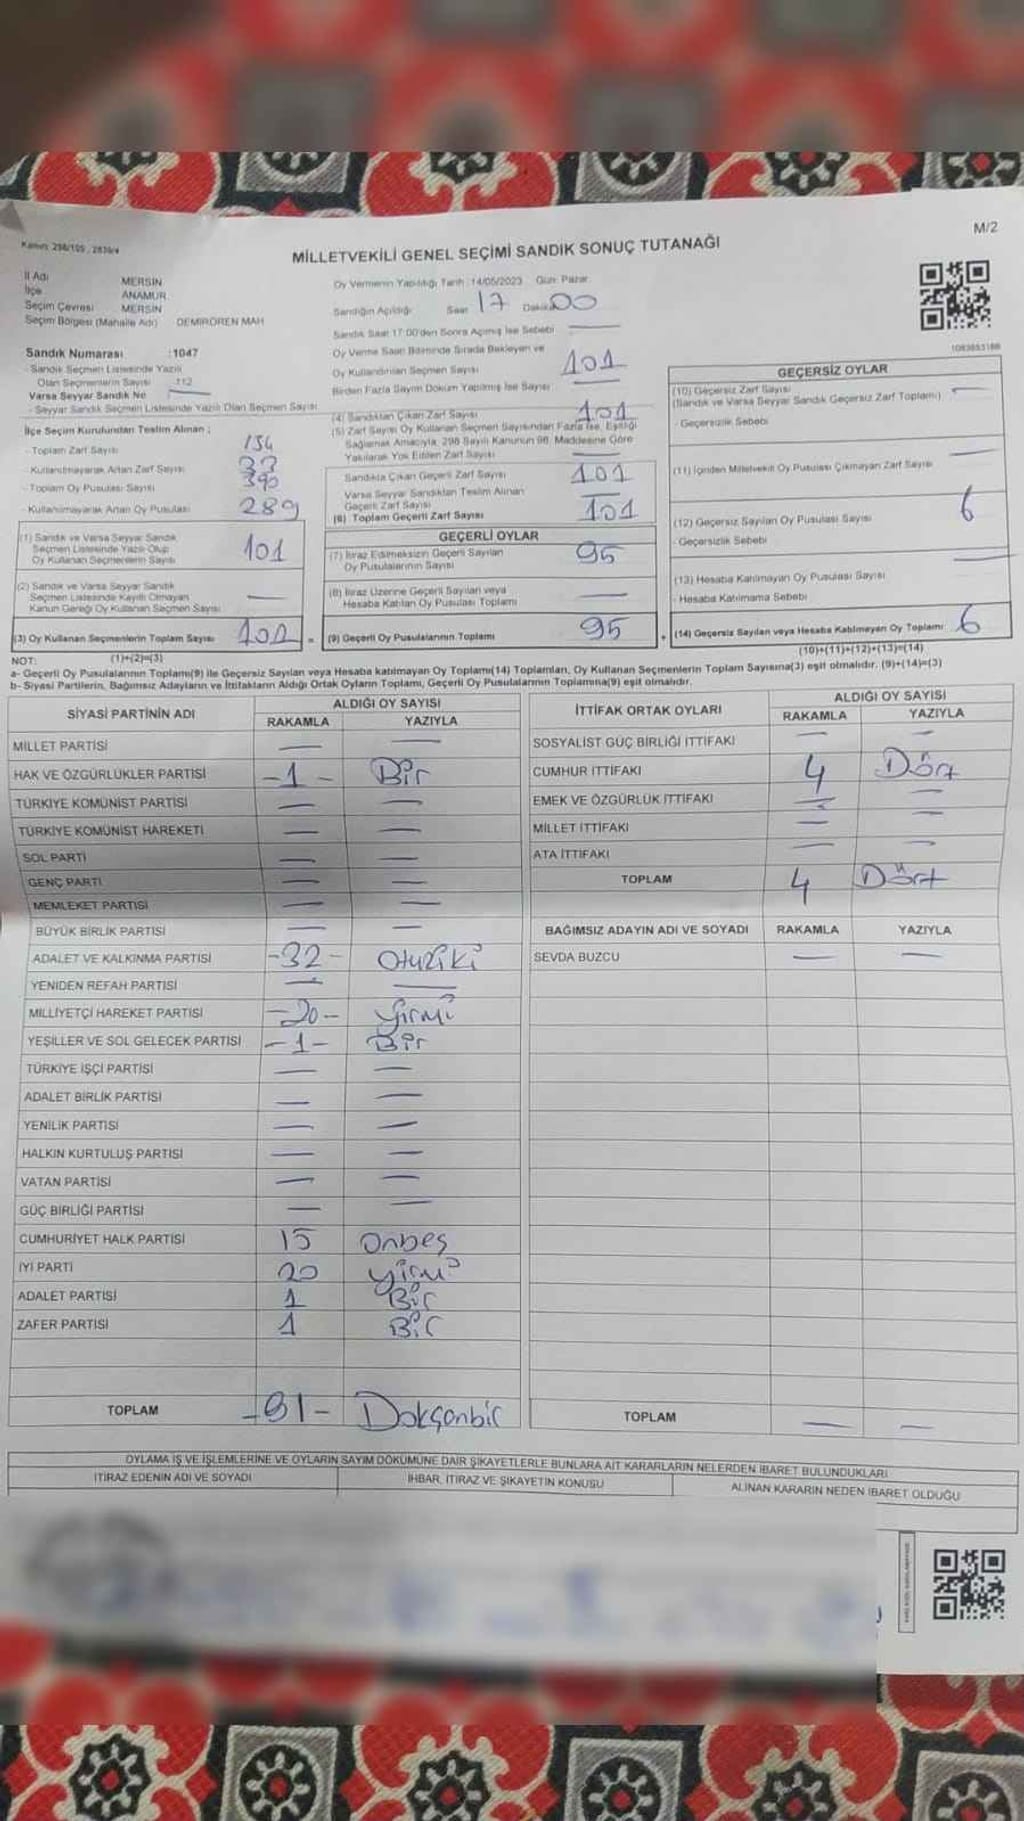 Kanun: 298/105, 2839/4
M/2
MİLLETVEKİLİ GENEL SEÇİMİ SANDIK SONUÇ TUTANAĞI
İl Adı MERSİN
İlçe ANAMUR
Seçim Çevresi MERSİN
Seçim Bölgesi (Mahalle Adı) DEMİRÖREN MAH
Sandık Numarası :1047
- Sandık Seçmen Listesinde Yazılı
Olan Seçmenlerin Sayısı 112
Varsa Seyyar Sandık No
- Seyyar Sandık Seçmen Listesinde Yazılı Olan Seçmen Sayısı
İlçe Seçim Kurulundan Teslim Alınan ;
- Toplam Zarf Sayısı 134
- Kullanılmayarak Artan Zarf Sayısı 33
- Toplam Oy Pusulası Sayısı 390
- Kullanılmayarak Artan Oy Pusulası 289
(1) Sandık ve Varsa Seyyar Sandık
Seçmen Listesinde Yazılı Olup
Oy Kullanan Seçmenlerin Sayısı 101
(2) Sandık ve Varsa Seyyar Sandık
Seçmen Listesinde Kayıtlı Olmayan
Kanun Gereği Oy Kullanan Seçmen Sayısı —
(3) Oy Kullanan Seçmenlerin Toplam Sayısı 101 =
(1)+(2)=(3)
Oy Vermenin Yapıldığı Tarih :14/05/2023 Gün: Pazar
Sandığın Açıldığı Saat 17 Dakika 00
Sandık Saat 17:00'den Sonra Açılmış İse Sebebi —
Oy Verme Saati Bitiminde Sırada Bekleyen ve
Oy Kullandırılan Seçmen Sayısı 101
Birden Fazla Sayım Döküm Yapılmış İse Sayısı —
(4) Sandıktan Çıkan Zarf Sayısı 101
(5) Zarf Sayısı Oy Kullanan Seçmen Sayısından Fazla İse, Eşitliği
Sağlamak Amacıyla, 298 Sayılı Kanunun 98. Maddesine Göre
Yakılarak Yok Edilen Zarf Sayısı —
Sandıkta Çıkan Geçerli Zarf Sayısı 101
Varsa Seyyar Sandıktan Teslim Alınan
Geçerli Zarf Sayısı —
(6) Toplam Geçerli Zarf Sayısı 101
GEÇERLİ OYLAR
(7) İtiraz Edilmeksizin Geçerli Sayılan
Oy Pusulalarının Sayısı 95
(8) İtiraz Üzerine Geçerli Sayılan veya
Hesaba Katılan Oy Pusulası Toplamı —
(9) Geçerli Oy Pusulalarının Toplamı 95 +
GEÇERSİZ OYLAR
(10) Geçersiz Zarf Sayısı
(Sandık ve Varsa Seyyar Sandık Geçersiz Zarf Toplamı) —
- Geçersizlik Sebebi
(11) İçinden Milletvekili Oy Pusulası Çıkmayan Zarf Sayısı —
(12) Geçersiz Sayılan Oy Pusulası Sayısı 6
- Geçersizlik Sebebi
(13) Hesaba Katılmayan Oy Pusulası Sayısı —
- Hesaba Katılmama Sebebi
(14) Geçersiz Sayılan veya Hesaba Katılmayan Oy Toplamı 6
(10)+(11)+(12)+(13)=(14)
NOT:
a- Geçerli Oy Pusulalarının Toplamı(9) ile Geçersiz Sayılan veya Hesaba katılmayan Oy Toplamı(14) Toplamları, Oy Kullanan Seçmenlerin Toplam Sayısına(3) eşit olmalıdır. (9)+(14)=(3)
b- Siyasi Partilerin, Bağımsız Adayların ve İttifakların Aldığı Ortak Oyların Toplamı, Geçerli Oy Pusulalarının Toplamına(9) eşit olmalıdır.
SİYASİ PARTİNİN ADI ALDIĞI OY SAYISI
RAKAMLA YAZIYLA
MİLLET PARTİSİ — —
HAK VE ÖZGÜRLÜKLER PARTİSİ -1- Bir
TÜRKİYE KOMÜNİST PARTİSİ — —
TÜRKİYE KOMÜNİST HAREKETİ — —
SOL PARTİ — —
GENÇ PARTİ — —
MEMLEKET PARTİSİ — —
BÜYÜK BİRLİK PARTİSİ — —
ADALET VE KALKINMA PARTİSİ -32- Otuziki
YENİDEN REFAH PARTİSİ — —
MİLLİYETÇİ HAREKET PARTİSİ -20- Yirmi
YEŞİLLER VE SOL GELECEK PARTİSİ -1- Bir
TÜRKİYE İŞÇİ PARTİSİ — —
ADALET BİRLİK PARTİSİ — —
YENİLİK PARTİSİ — —
HALKIN KURTULUŞ PARTİSİ — —
VATAN PARTİSİ — —
GÜÇ BİRLİĞİ PARTİSİ — —
CUMHURİYET HALK PARTİSİ 15 Onbeş
İYİ PARTİ 20 yirmi
ADALET PARTİSİ 1 Bir
ZAFER PARTİSİ 1 Bir
TOPLAM -91- Doksanbir
İTTİFAK ORTAK OYLARI ALDIĞI OY SAYISI
RAKAMLA YAZIYLA
SOSYALİST GÜÇ BİRLİĞİ İTTİFAKI — —
CUMHUR İTTİFAKI 4 Dört
EMEK VE ÖZGÜRLÜK İTTİFAKI — —
MİLLET İTTİFAKI — —
ATA İTTİFAKI — —
TOPLAM 4 Dört
BAĞIMSIZ ADAYIN ADI VE SOYADI RAKAMLA YAZIYLA
SEVDA BUZCU — —
TOPLAM — —
OYLAMA İŞ VE İŞLEMLERİNE VE OYLARIN SAYIM DÖKÜMÜNE DAİR ŞİKAYETLERLE BUNLARA AİT KARARLARIN NELERDEN İBARET BULUNDUKLARI
İTİRAZ EDENİN ADI VE SOYADI İHBAR, İTİRAZ VE ŞİKAYETİN KONUSU ALINAN KARARIN NEDEN İBARET OLDUĞU